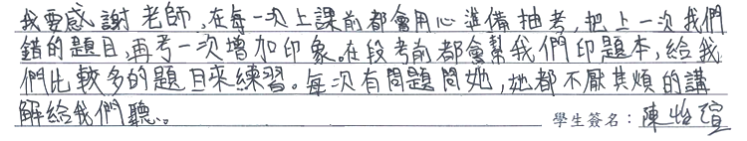 我要感謝老師,在每一次上課前都會用心準備抽考,把上一次我們
錯的題目,再考一次增加印象。在段考前都會幫我們印題本,給我
們比較多的題目來練習。每次有問題問她,她都不厭其煩的講
解給我們聽。 學生簽名:陳怡瑄